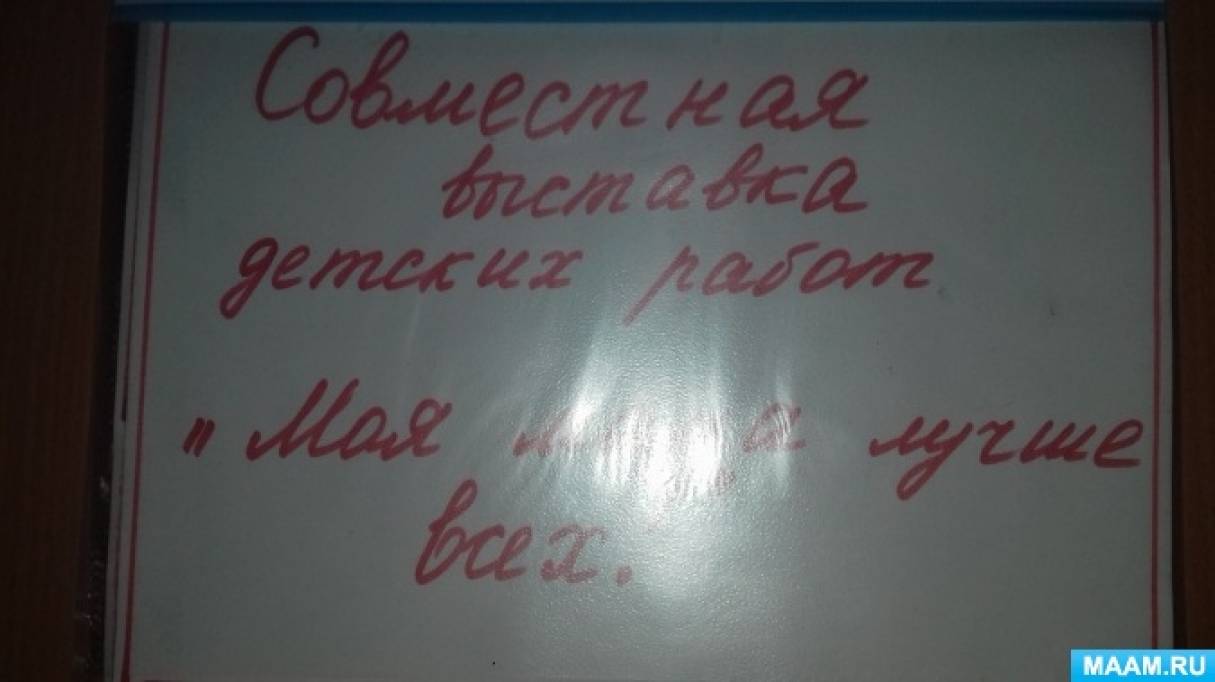 Совместная
выставка
детских работ
" Моя лучше
всех.
MAAM.RU